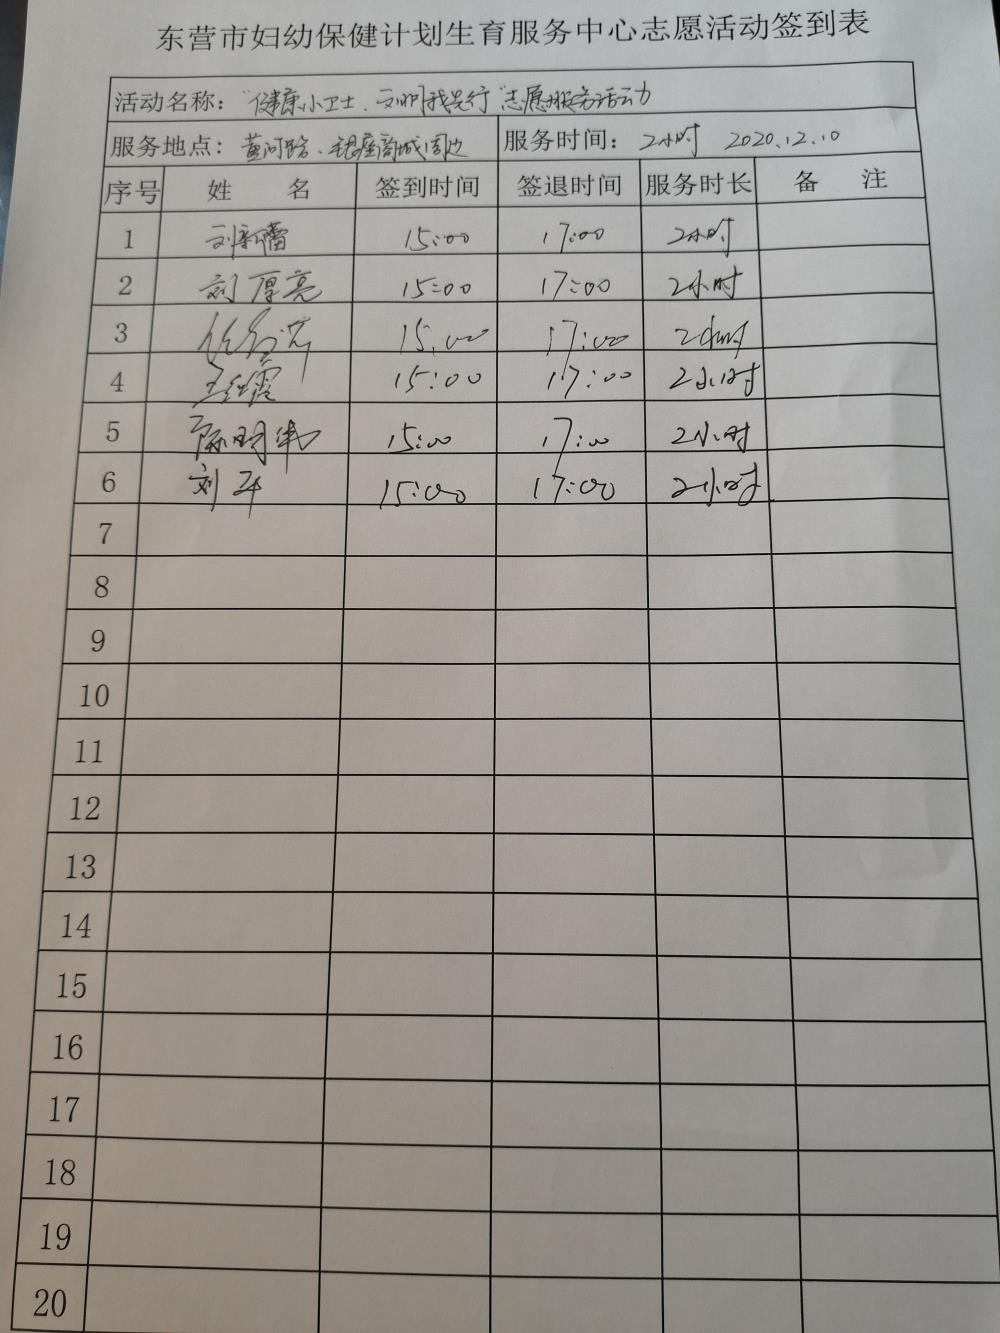 东营市妇幼保健计划生育服务中心志愿活动签到表
活动名称：“健康小卫士、文明我先行”志愿服务活动
服务地点：黄河路、银座商城周边 服务时间：2小时 2020.12.10
序号 姓 名 签到时间 签退时间 服务时长 备 注
1 刘新蕾 15:00 17:00 2小时
2 刘厚亮 15:00 17:00 2小时
3 15:00 17:00 2小时
4 15:00 17:00 2小时
5 陈明伟 15:00 17:00 2小时
6 刘平 15:00 17:00 2小时
7
8
9
10
11
12
13
14
15
16
17
18
19
20